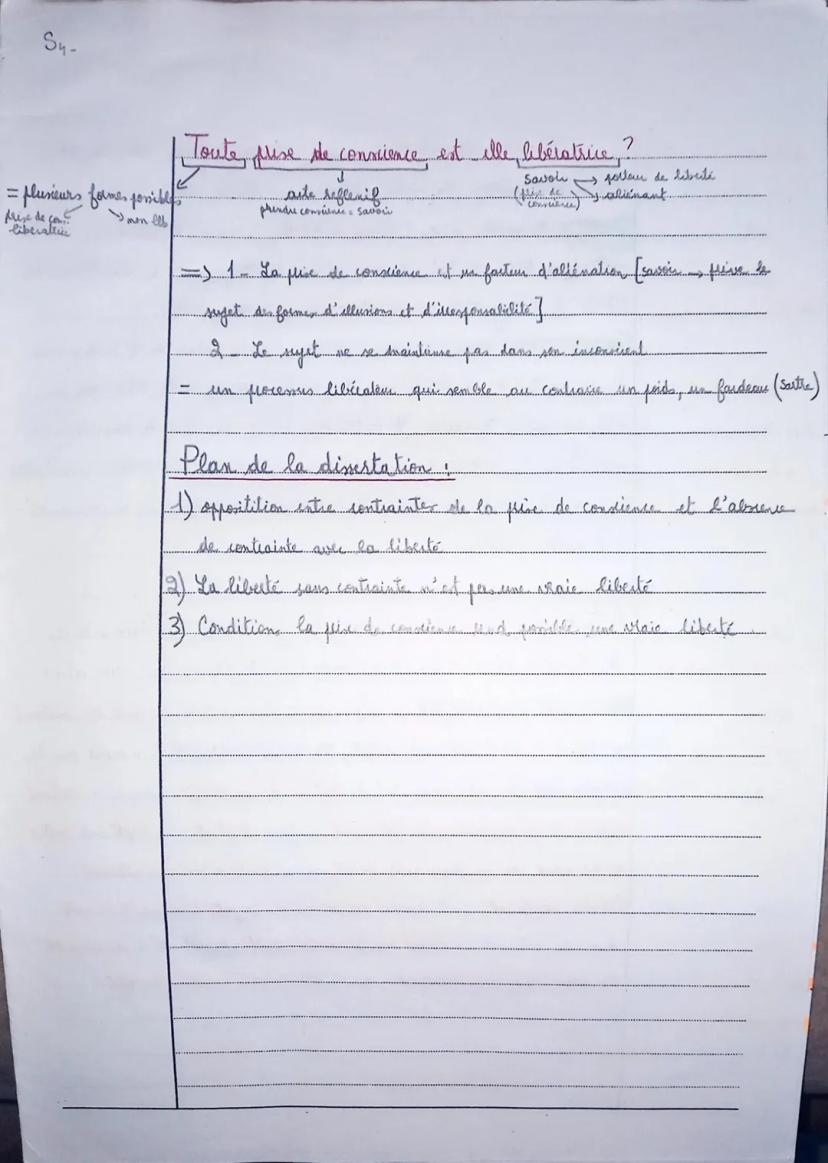 S4-
Toute prise de conscience est elle libératrice ?
savoir → porteur de liberté
(prise de conscience) → aliénant
= plusieurs formes possibles
prise de con. libératrice → non lib
acte reflexif
prendre conscience = savoir
=> 1 - La prise de conscience est un facteur d'aliénation [savoir → prive le
sujet des formes d'illusions et d'irresponsabilité]
2 - Le sujet ne se maintienne pas dans son inconscient
= un processus libérateur qui semble au contraire un poids, un fardeau (Sartre)
Plan de la dissertation :
1) oppositition entre contraintes de la prise de conscience et l'absence
de contrainte avec la liberté
2) La liberté sans contrainte n'est pas une vraie liberté
3) Conditions la prise de conscience rend possible une vraie liberté